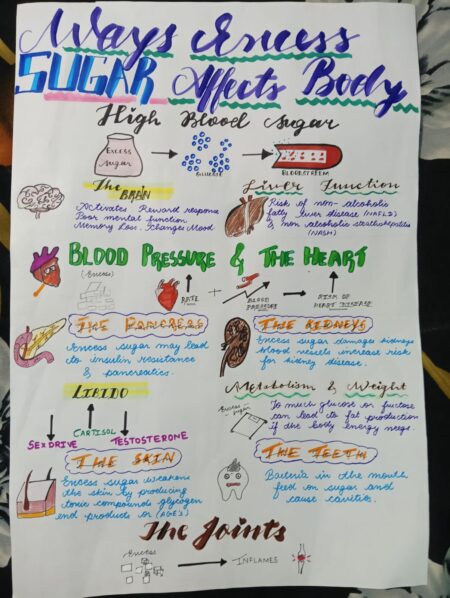 Ways Excess
SUGAR Affects Body
High Blood Sugar
EXCESS
SUGAR
GLUCOSE
BLOODSTREEM
The
BRAIN
Activates Reward response
Poor mental function
Memory Loss. Changes Mood
Liver Function
Risk of non-alcoholic
fatty liver disease (NAFLD)
& non alcoholic steatohepatitis
(NASH)
BLOOD PRESSURE & THE HEART
(Excess)
RATE
+
BLOOD
PRESSURE
RISK OF
HEART DISEASE
THE PANCREAS
Excess sugar may lead
to insulin resistance
& pancreatics.
THE KIDNEYS
Excess sugar damages kidneys
blood vessels increase risk
for kidney disease.
LIBIDO
CARTISOL
SEX DRIVE
TESTOSTERONE
Metabolism & Weight
Excess
Sugar
To much glucose or fructose
can lead to fat production
if the body energy needs.
THE SKIN
Excess sugar weakens
the skin by producing
toxic compounds glycogen
end products or (AGE's)
THE TEETH
Bacteria in the mouth
feed on sugar and
cause cavities.
The Joints
Excess
INFLAMES